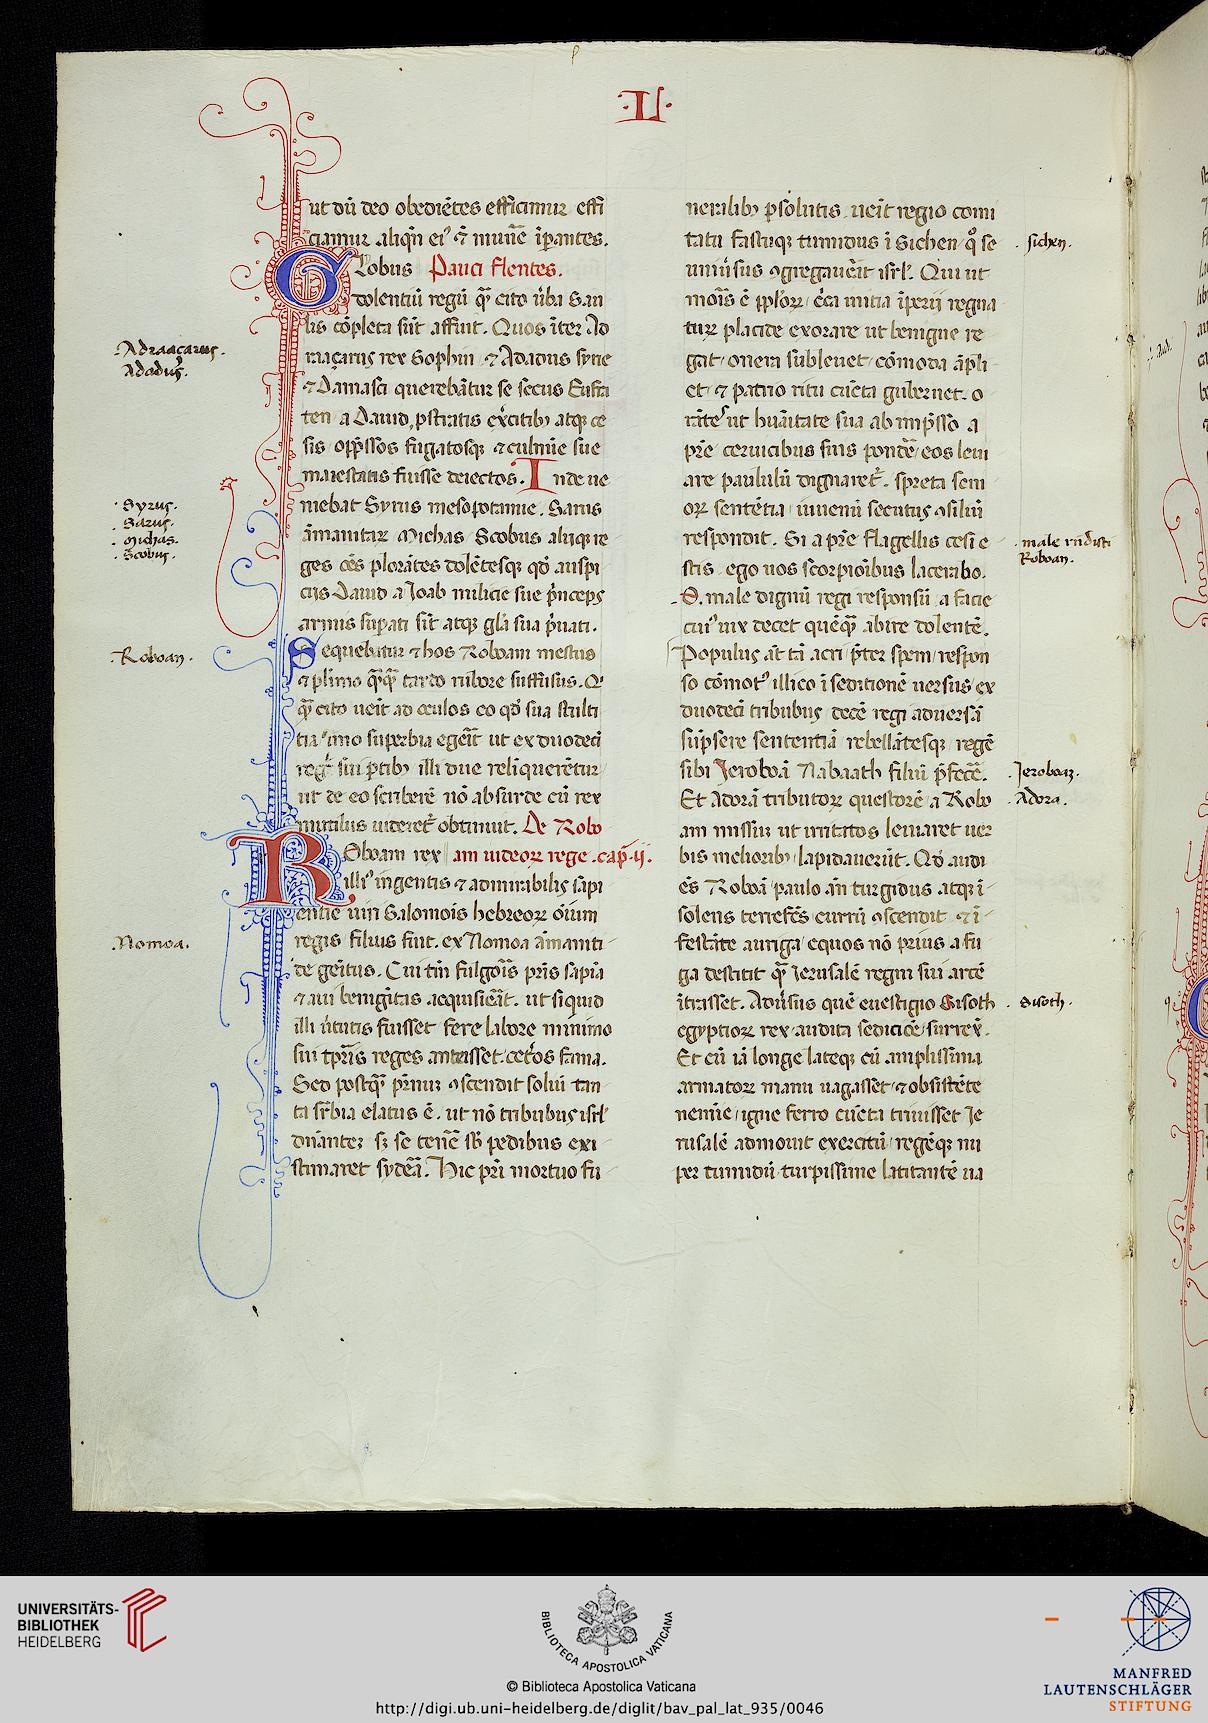 .II.
ut dū deo obediētes efficimur effi
ciamur aliqn̄ ei⁹ ⁊ munē ip̄antes.
Globus Pauci flentes.
dolentiū regū q̄ȝ cito ūba San
lis cōpleta sūt affuit. Quos īter Ad
raaçarus rex Sophin ⁊ Adadus syrie
⁊ Damasci querebātur se secus Eufra
ten a Dauid, pstratis ex̄citibȝ atqȝ ce
sis opp̄ssos fugatosqȝ ⁊ culmīe sue
maiestatis fuisse deiectos. Inde ue
niebat Syrus mesopotamie. Sarus
āmanitaȝ Michas Scobus aliiqȝ re
ges oēs plorātes dolētesqȝ qd̄ auspi
ciis Dauid a Joab milicie sue p̄nceps
armis sup̄ati sūt atqȝ gl̄a sua p̄uati.
Sequebatur ⁊ hos Roboam mestus
⁊ pl̄imo q̄ȝq̄ȝ tardo rubore suffusus. Q
q̄ȝ cito ueīt ad oculos eo qd̄ sua stulti
tia imo superbia egēit ut ex duodecī
regī sui p̄tibȝ illi due reliquerētur
ut de eo scriberē nō absurde cū rex
mutilus uideret̄ obtinuit. De Robo
Roboam rex am iudeoȝ rege .cap̄. ij.
illi⁹ ingentis ⁊ admirabilis sapi
entie uiri Salomōis hebreoȝ ōium
regis filius fuit. ex Nomoa āmaniti
de gēitus. Cui tn̄ fulgoīs pr̄is sapīa
⁊ aui benigītas acquisiēāt. ut si quid
illi ūtutis fuisset fere labore minimo
sui tpr̄is reges anteisset cet̄os fama.
Sed postq̄ȝ pr̄imuȝ ɔscendit soliū tan
ta sr̄bia elatus ē. ut nō tribubus isrl̄
dn̄anteȝ sȝ se tenē sb̄ pedibus exi
stimaret sydēa. Hic pr̄i mortuo fu
neralibȝ psolutis ueīt regio comi
tatu fastuqȝ tumidus ī Sichen qō se
uniūsus ɔgregauēāt isrl̄. Qui ut
mois ē ppl̄oȝ ērca initia īperii regna
tuȝ placide exorare ut benigne re
gat onera subleuet cōmoda āpli
et ⁊ patrio ritu cūcta gubernet. o
rāte⁹ ut huāitate sua ab imp̄sso a
pr̄e ceruicibus suis pondē eos leui
are paululū dignaret̄. spreta seni
oȝ sentētia iuuenū secutus ɔsiliū
respondit. Si a pr̄e flagellis cesi e
stis ego uos scorpioībus lacerabo.
O. male dignū regi responsū a facie
cui⁹ uix decet quēq̄ȝ abire dolentē.
Populus āt tā acri p̄ter spem respon
so cōmot⁹ illico ī seditionē uersus ex
duodecī tribubus decē regi aduersā
sūpsere sententiā rebellātesqȝ regē
sibi Jeroboā Nabaath filiū p̄fecē.
Et Adorā tributoȝ questorē a Robo
am missuȝ ut irritatos leniaret uer
bis melioribȝ lapidauerūt. Qd̄ audi
ēs Roboā paulo an̄ turgidus atqȝ ī
solens terrefēs currū ɔscendit ⁊ ī
festāte auriga equos nō prius a fu
ga destitit q̄ȝ Jerusalē regni sui arcē
ītrasset. Adūsus quē euestigio Susoth
egyptioȝ rex audita sedicōe surrex̄.
Et cū iā longe lateqȝ cū amplissima
armatoȝ manu uagasset ⁊ obsistēte
nemīe igne ferro cūcta triuisset Je
rusalē admouit exercitū regēqȝ nu
per tumidū turpissime latitantē ua
. Adraaçarus.
Adadus.
. Syrus.
. Sarus.
. Michas.
. Scobus.
. Roboan.
. Nomoa.
. sichen.
. male rn̄disti
Roboan.
. Jeroboaȝ.
. Adora.
. Susoth.
UNIVERSITÄTS-
BIBLIOTHEK
HEIDELBERG
BIBLIOTECA APOSTOLICA VATICANA
© Biblioteca Apostolica Vaticana
http://digi.ub.uni-heidelberg.de/diglit/bav_pal_lat_935/0046
MANFRED
LAUTENSCHLÄGER
STIFTUNG